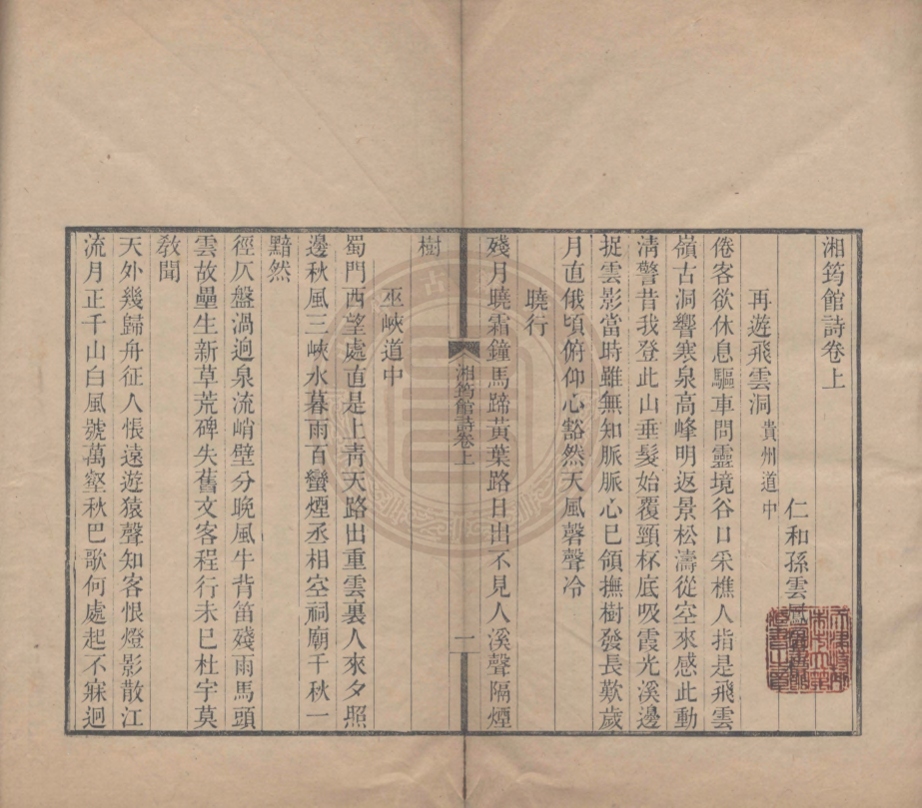 湘筠館詩卷上
仁和孫雲
再遊飛雲洞貴州道中
倦客欲休息驅車問靈境谷口采樵人指是飛雲
嶺古洞響寒泉高峰明返景松濤從空來感此動
清警昔我登此山垂髮始覆頸杯底吸霞光溪邊
捉雲影當時雖無知脈脈心已領撫樹發長歎歲
月直俄頃俯仰心豁然天風磬聲冷
曉行
殘月曉霜鐘馬蹄黃葉路日出不見人溪聲隔煙
湘筠館詩卷上
一
樹
巫峽道中
蜀門西望處直是上青天路出重雲裏人來夕照
邊秋風三峽水暮雨百蠻煙丞相空祠廟千秋一
黯然
徑仄盤渦迥泉流峭壁分晚風牛背笛殘雨馬頭
雲故壘生新草荒碑失舊文客程行未已杜宇莫
敎聞
天外幾歸舟征人悵遠遊猿聲知客恨燈影散江
流月正千山白風號萬壑秋巴歌何處起不寐迥